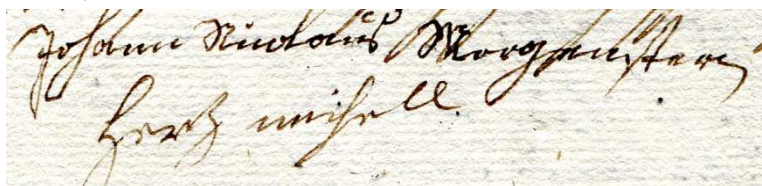 Johann Nicolaus Morgenstern
Hertz michell